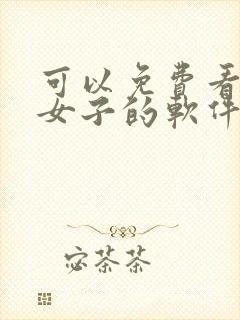 可以免費看
女子的軟件
宓茶茶